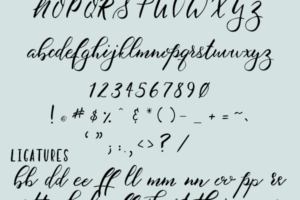 NOPQRSTUVWXYZ
abcdefghijklmnopqrstuvwxyz
1234567890
! @ # $ % ^ & * ( ) - _ + = ~ .
‘ ’ ” ; : . , < > ? /
LIGATURES
bb dd ee ff ll mm nn oo pp re